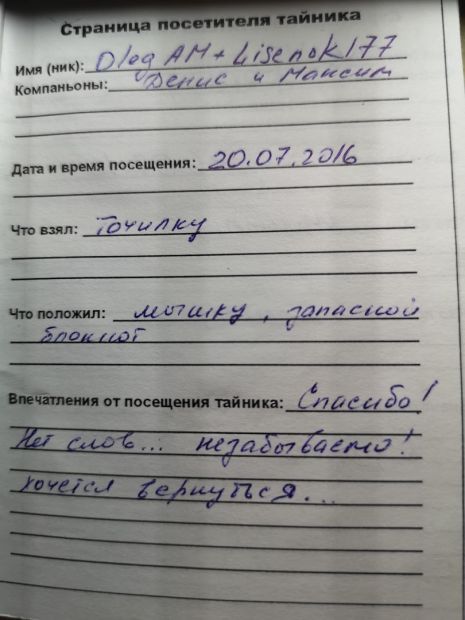 Страница посетителя тайника
Имя (ник): OlegAM + Lisenok177
Компаньоны: Денис и Максим
Дата и время посещения: 20.07.2016
Что взял: Точилку
Что положил: мышку, запасной
блокнот
Впечатления от посещения тайника: Спасибо!
Нет слов... незабываемо!
Хочется вернуться...